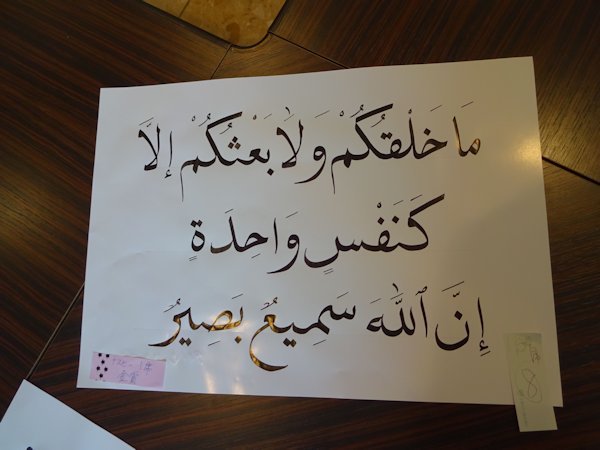 مَا خَلْقُكُمْ وَلَا بَعْثُكُمْ إلَّا
كَنَفْسٍ وَاحِدَةٍ
إِنَّ ٱللَّهَ سَمِيعٌ بَصِيرٌ